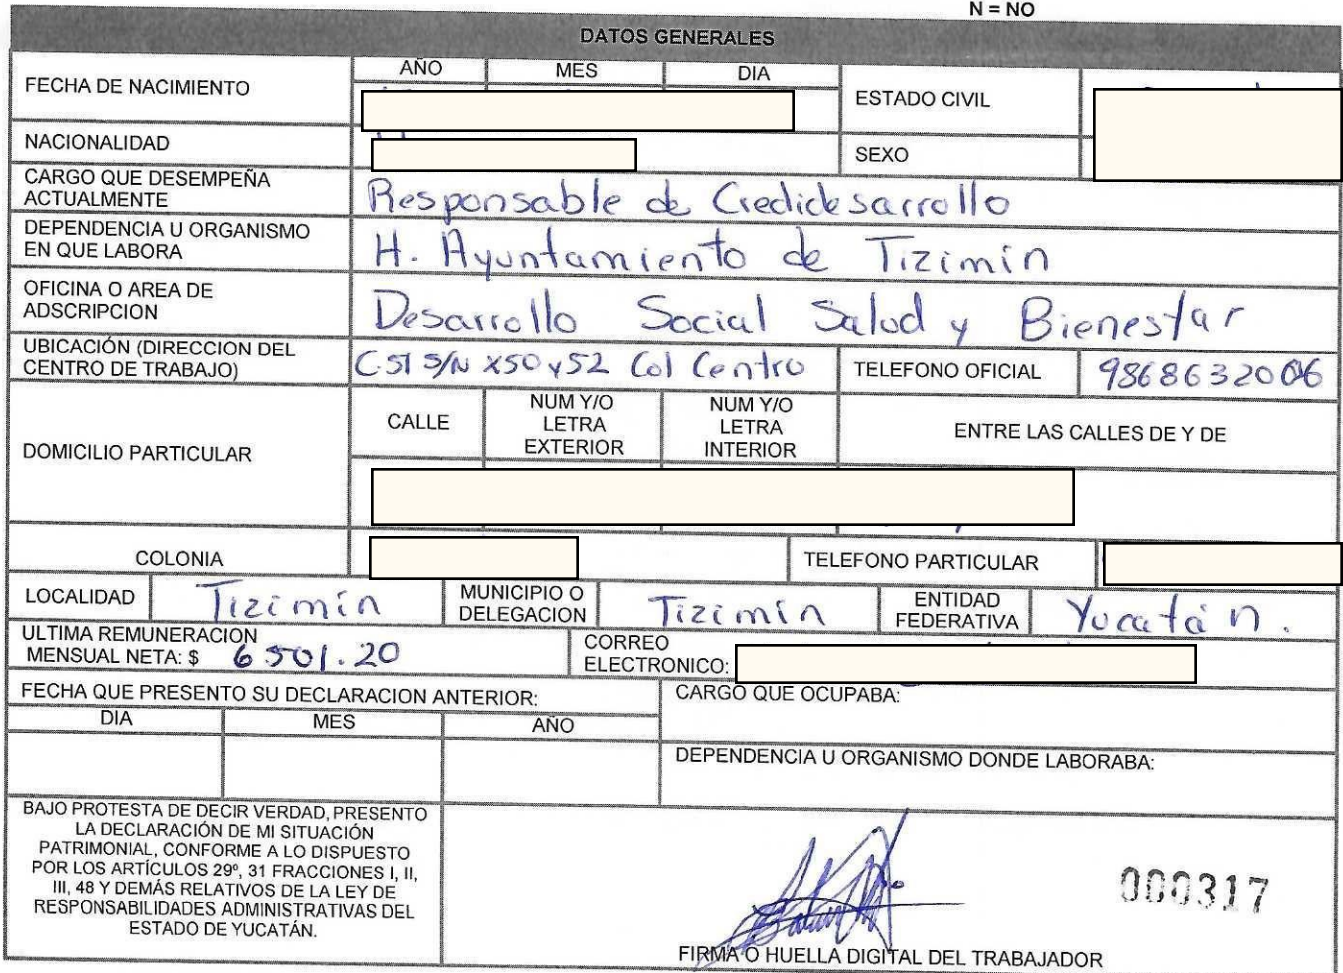 N = NO
DATOS GENERALES
FECHA DE NACIMIENTO
AÑO MES DIA
ESTADO CIVIL
NACIONALIDAD
SEXO
CARGO QUE DESEMPEÑA
ACTUALMENTE
Responsable de Credidesarrollo
DEPENDENCIA U ORGANISMO
EN QUE LABORA
H. Ayuntamiento de Tizimín
OFICINA O AREA DE
ADSCRIPCION
Desarrollo Social Salud y Bienestar
UBICACIÓN (DIRECCION DEL
CENTRO DE TRABAJO)
C51 S/N x50 y 52 Col Centro
TELEFONO OFICIAL
9868632006
DOMICILIO PARTICULAR
CALLE
NUM Y/O
LETRA
EXTERIOR
NUM Y/O
LETRA
INTERIOR
ENTRE LAS CALLES DE Y DE
COLONIA
TELEFONO PARTICULAR
LOCALIDAD
Tizimín
MUNICIPIO O
DELEGACION
Tizimín
ENTIDAD
FEDERATIVA
Yucatán.
ULTIMA REMUNERACION
MENSUAL NETA: $ 6501.20
CORREO
ELECTRONICO:
FECHA QUE PRESENTO SU DECLARACION ANTERIOR:
DIA MES AÑO
CARGO QUE OCUPABA:
DEPENDENCIA U ORGANISMO DONDE LABORABA:
BAJO PROTESTA DE DECIR VERDAD, PRESENTO
LA DECLARACIÓN DE MI SITUACIÓN
PATRIMONIAL, CONFORME A LO DISPUESTO
POR LOS ARTÍCULOS 29º, 31 FRACCIONES I, II,
III, 48 Y DEMÁS RELATIVOS DE LA LEY DE
RESPONSABILIDADES ADMINISTRATIVAS DEL
ESTADO DE YUCATÁN.
000317
FIRMA O HUELLA DIGITAL DEL TRABAJADOR